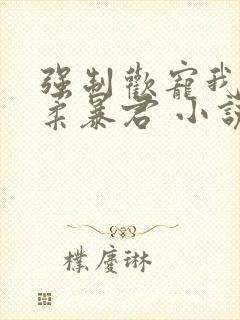 強制歡寵我
柔暴君 小說
樸慶琳